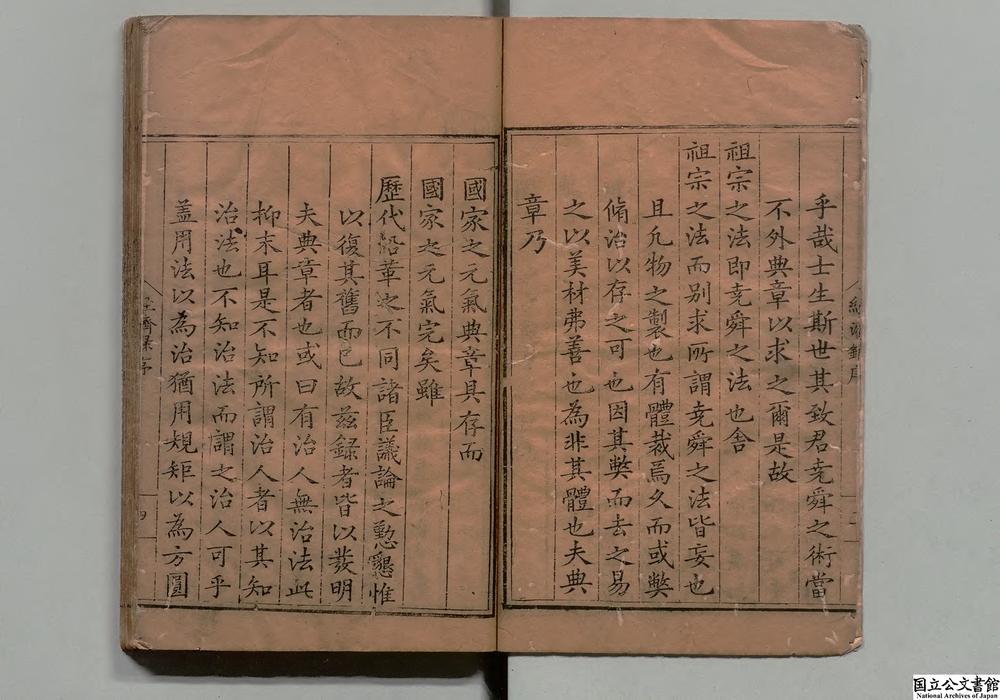 乎哉士生斯世其致君尭舜之術當
不外典章以求之爾是故
祖宗之法即尭舜之法也舎
祖宗之法而别求所謂尭舜之法皆妄也
且凡物之製也有體裁焉久而或獘
脩治以存之可也因其獘而去之易
之以美材弗善也為非其體也夫典
章乃
國家之元氣典章具存而
國家之元氣完矣雖
歷代沿革之不同諸臣議論之懃懇惟
以復其舊而已故兹録者皆以發明
夫典章者也或曰有治人無治法此
抑末耳是不知所謂治人者以其知
治法也不知治法而謂之治人可乎
盖用法以為治猶用規矩以為方圓
經濟録序
四
国立公文書館
National Archives of Japan